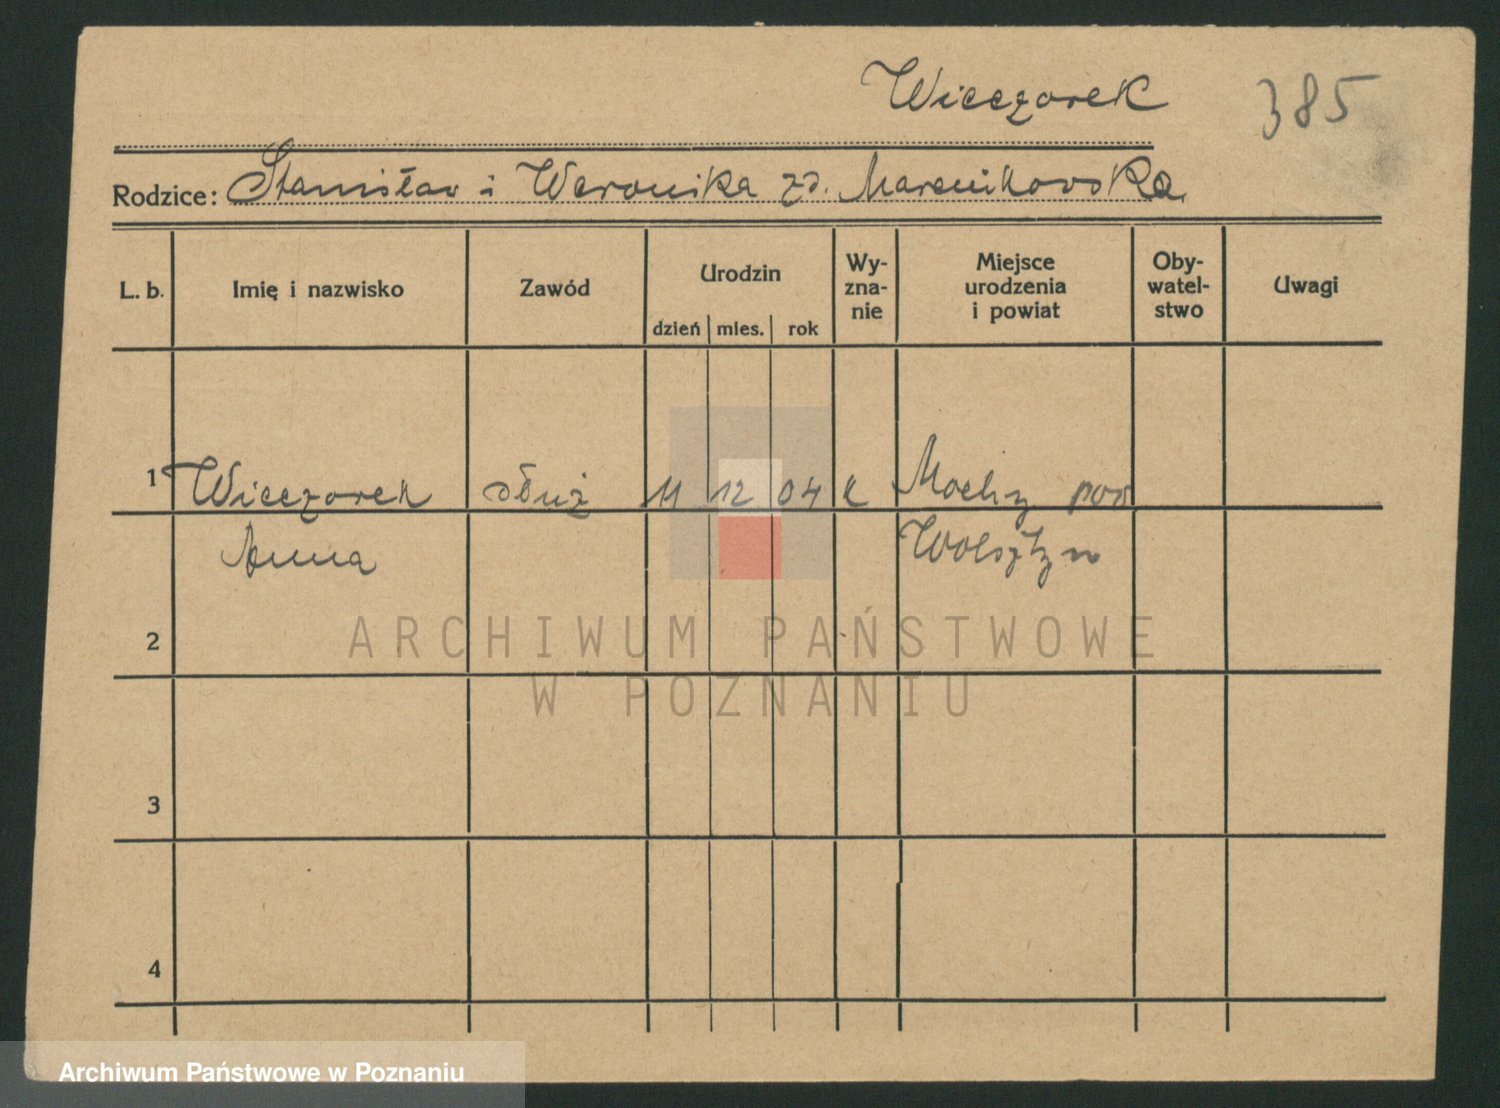 Wieczorek 385
Rodzice: Stanisław i Weronika zd. Marcinkowska
L. b. Imię i nazwisko Zawód Urodzin dzień mies. rok Wy-zna-nie Miejsce urodzenia i powiat Oby-watel-stwo Uwagi
1 Wieczorek służ 11 12 04 k Mochy pow
Anna Wolsztyn
2
ARCHIWUM PAŃSTWOWE
W POZNANIU
3
4
Archiwum Państwowe w Poznaniu